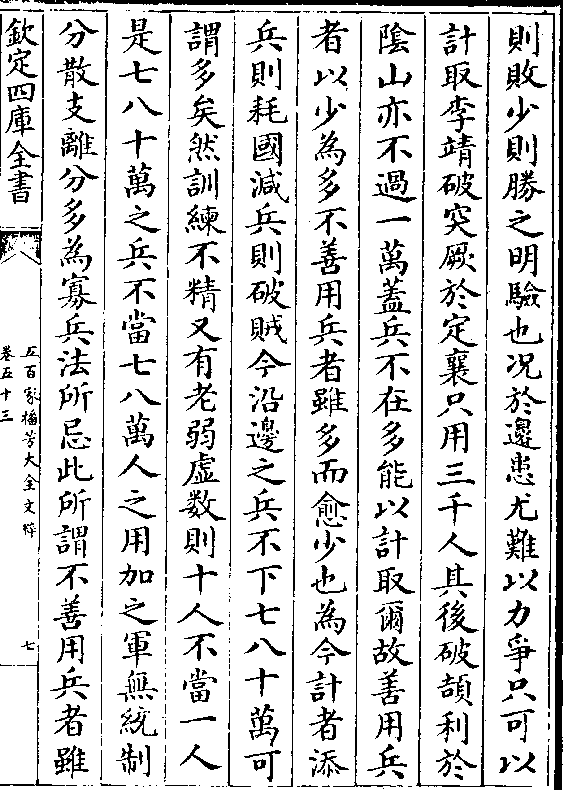 則敗少則勝之明驗也况於邊患尤難以力爭只可以
計取李靖破突厥於定襄只用三千人其後破頡利於
陰山亦不過一萬蓋兵不在多能以計取爾故善用兵
者以少為多不善用兵者雖多而愈少也為今計者添
兵則耗國減兵則破賊今沿邊之兵不下七八十萬可
謂多矣然訓練不精又有老弱虛數則十人不當一人
是七八十萬之兵不當七八萬人之用加之軍無統制
分散支離分多為寡兵法所忌此所謂不善用兵者雖
欽定四庫全書
五百家播芳大全文粹
卷五十三
七